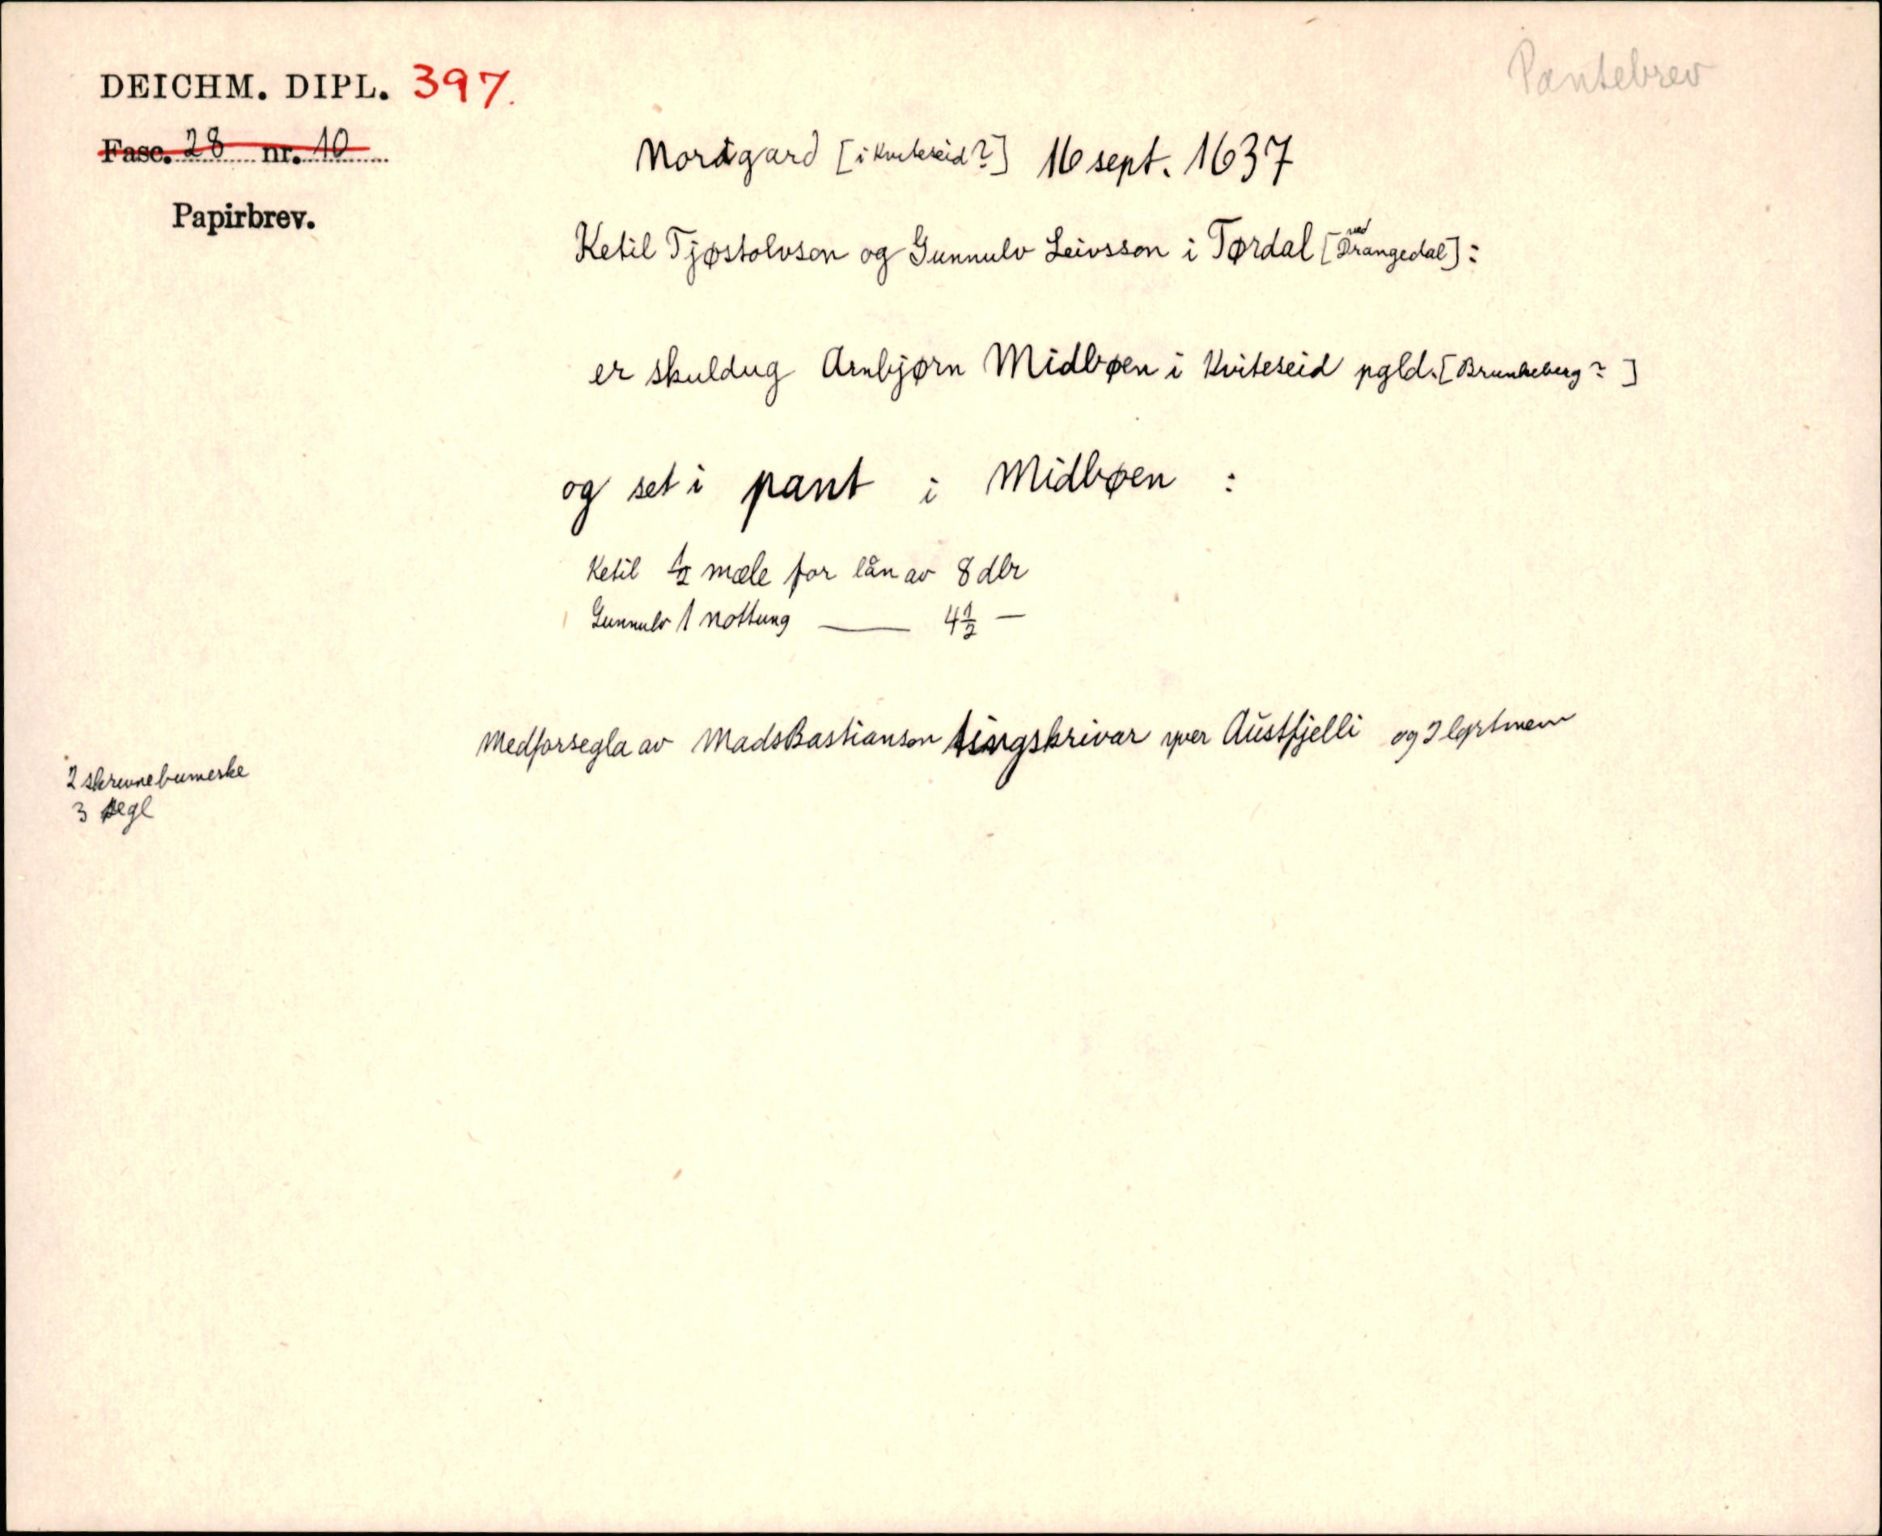 DEICHM. DIPL. 397.
Pantebrev
Fasc. 28 nr. 10
Papirbrev.
Nordgard [i Kviteseid?] 16 sept. 1637
Ketil Tjøstolvson og Gunnulv Leivsson i Tørdal [ved Drangedal]:
er skuldug Arnbjørn Midbøen i Kviteseid pgld. [Brunkeberg?]
og set i pant i Midbøen :
Ketil ½ mæle for lån av 8 dlr
Gunnulv 1 nottung —— 4½ —
Medforsegla av Mads Bastianson tingskrivar yver Austfjelli og 2 lgrtmenn
2 skrevne bumerke
3 segl